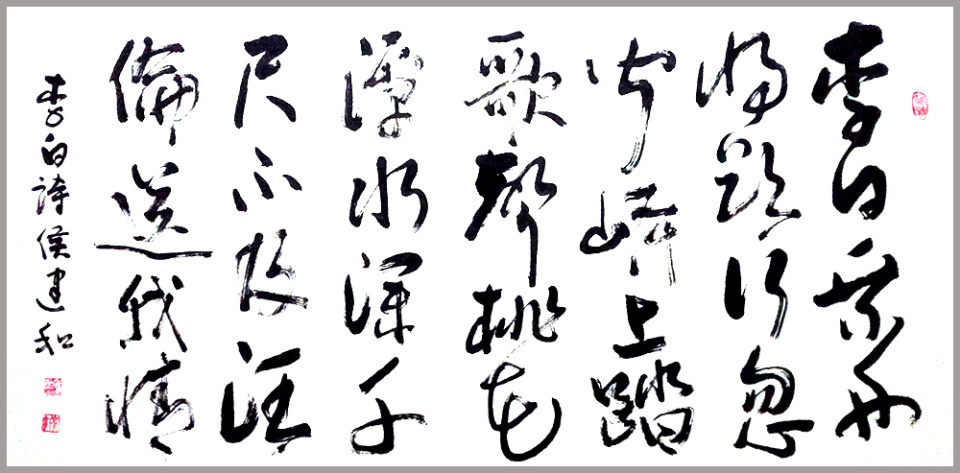 李白乘舟
將欲行忽
聞岸上踏
歌聲桃花
潭水深千
尺不及汪
倫送我情
李白詩侯建和